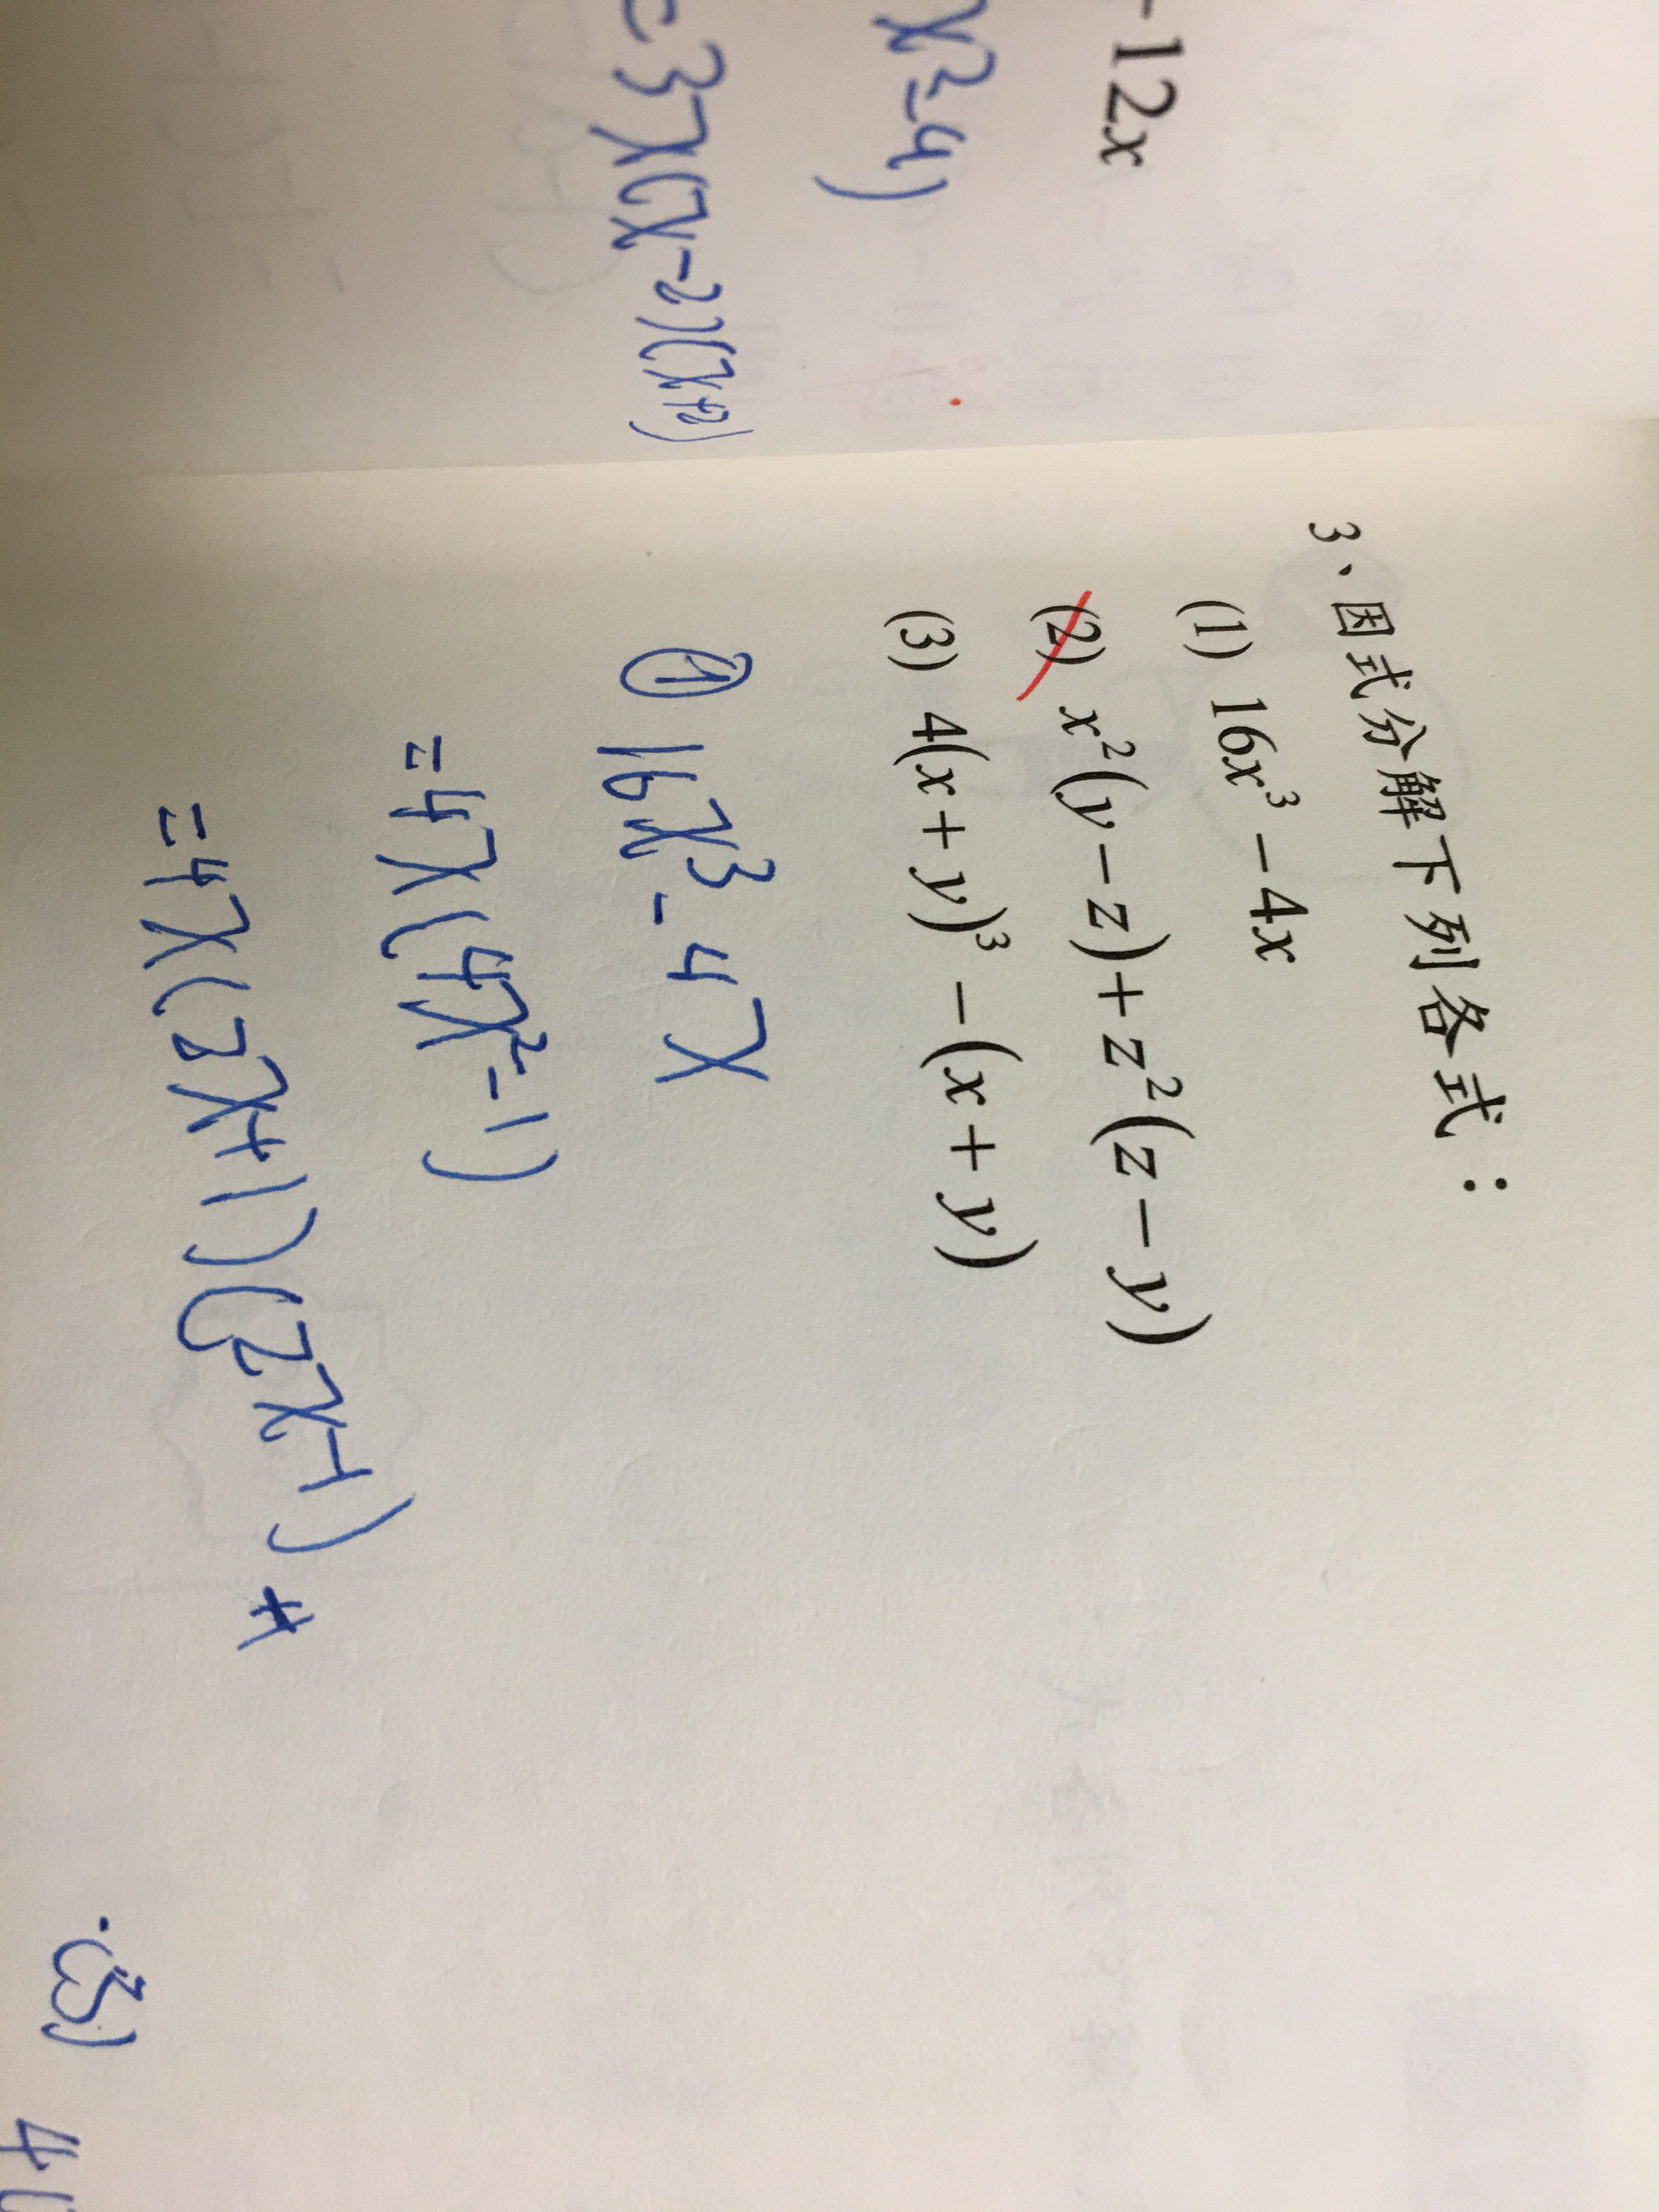 -12x
x²-4)
=3x(x-2)(x+2)
3、因式分解下列各式：
(1) 16x³-4x
(2) x²(y-z)+z²(z-y)
(3) 4(x+y)³-(x+y)
① 16x³-4x
=4x(4x²-1)
=4x(2x+1)(2x-1)
(3) 4(